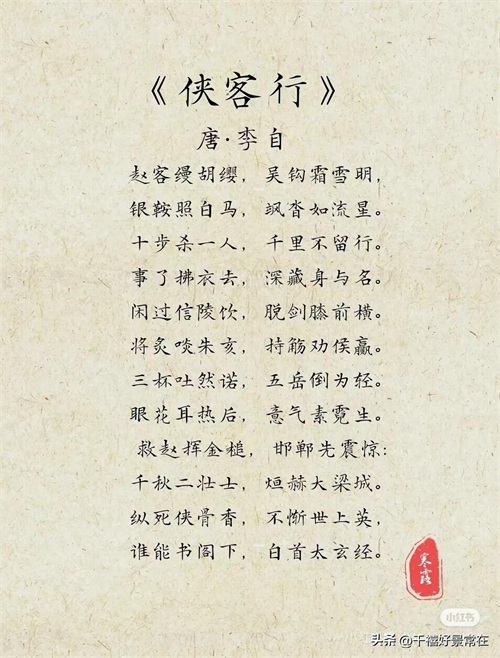 《侠客行》
唐·李自
赵客缦胡缨，吴钩霜雪明，
银鞍照白马，飒沓如流星。
十步杀一人，千里不留行。
事了拂衣去，深藏身与名。
闲过信陵饮，脱剑膝前横。
将炙啖朱亥，持觞劝侯嬴。
三杯吐然诺，五岳倒为轻。
眼花耳热后，意气素霓生。
救赵挥金槌，邯郸先震惊：
千秋二壮士，烜赫大梁城。
纵死侠骨香，不惭世上英，
谁能书阁下，白首太玄经。
寒露
小红书
头条 @千禧好景常在